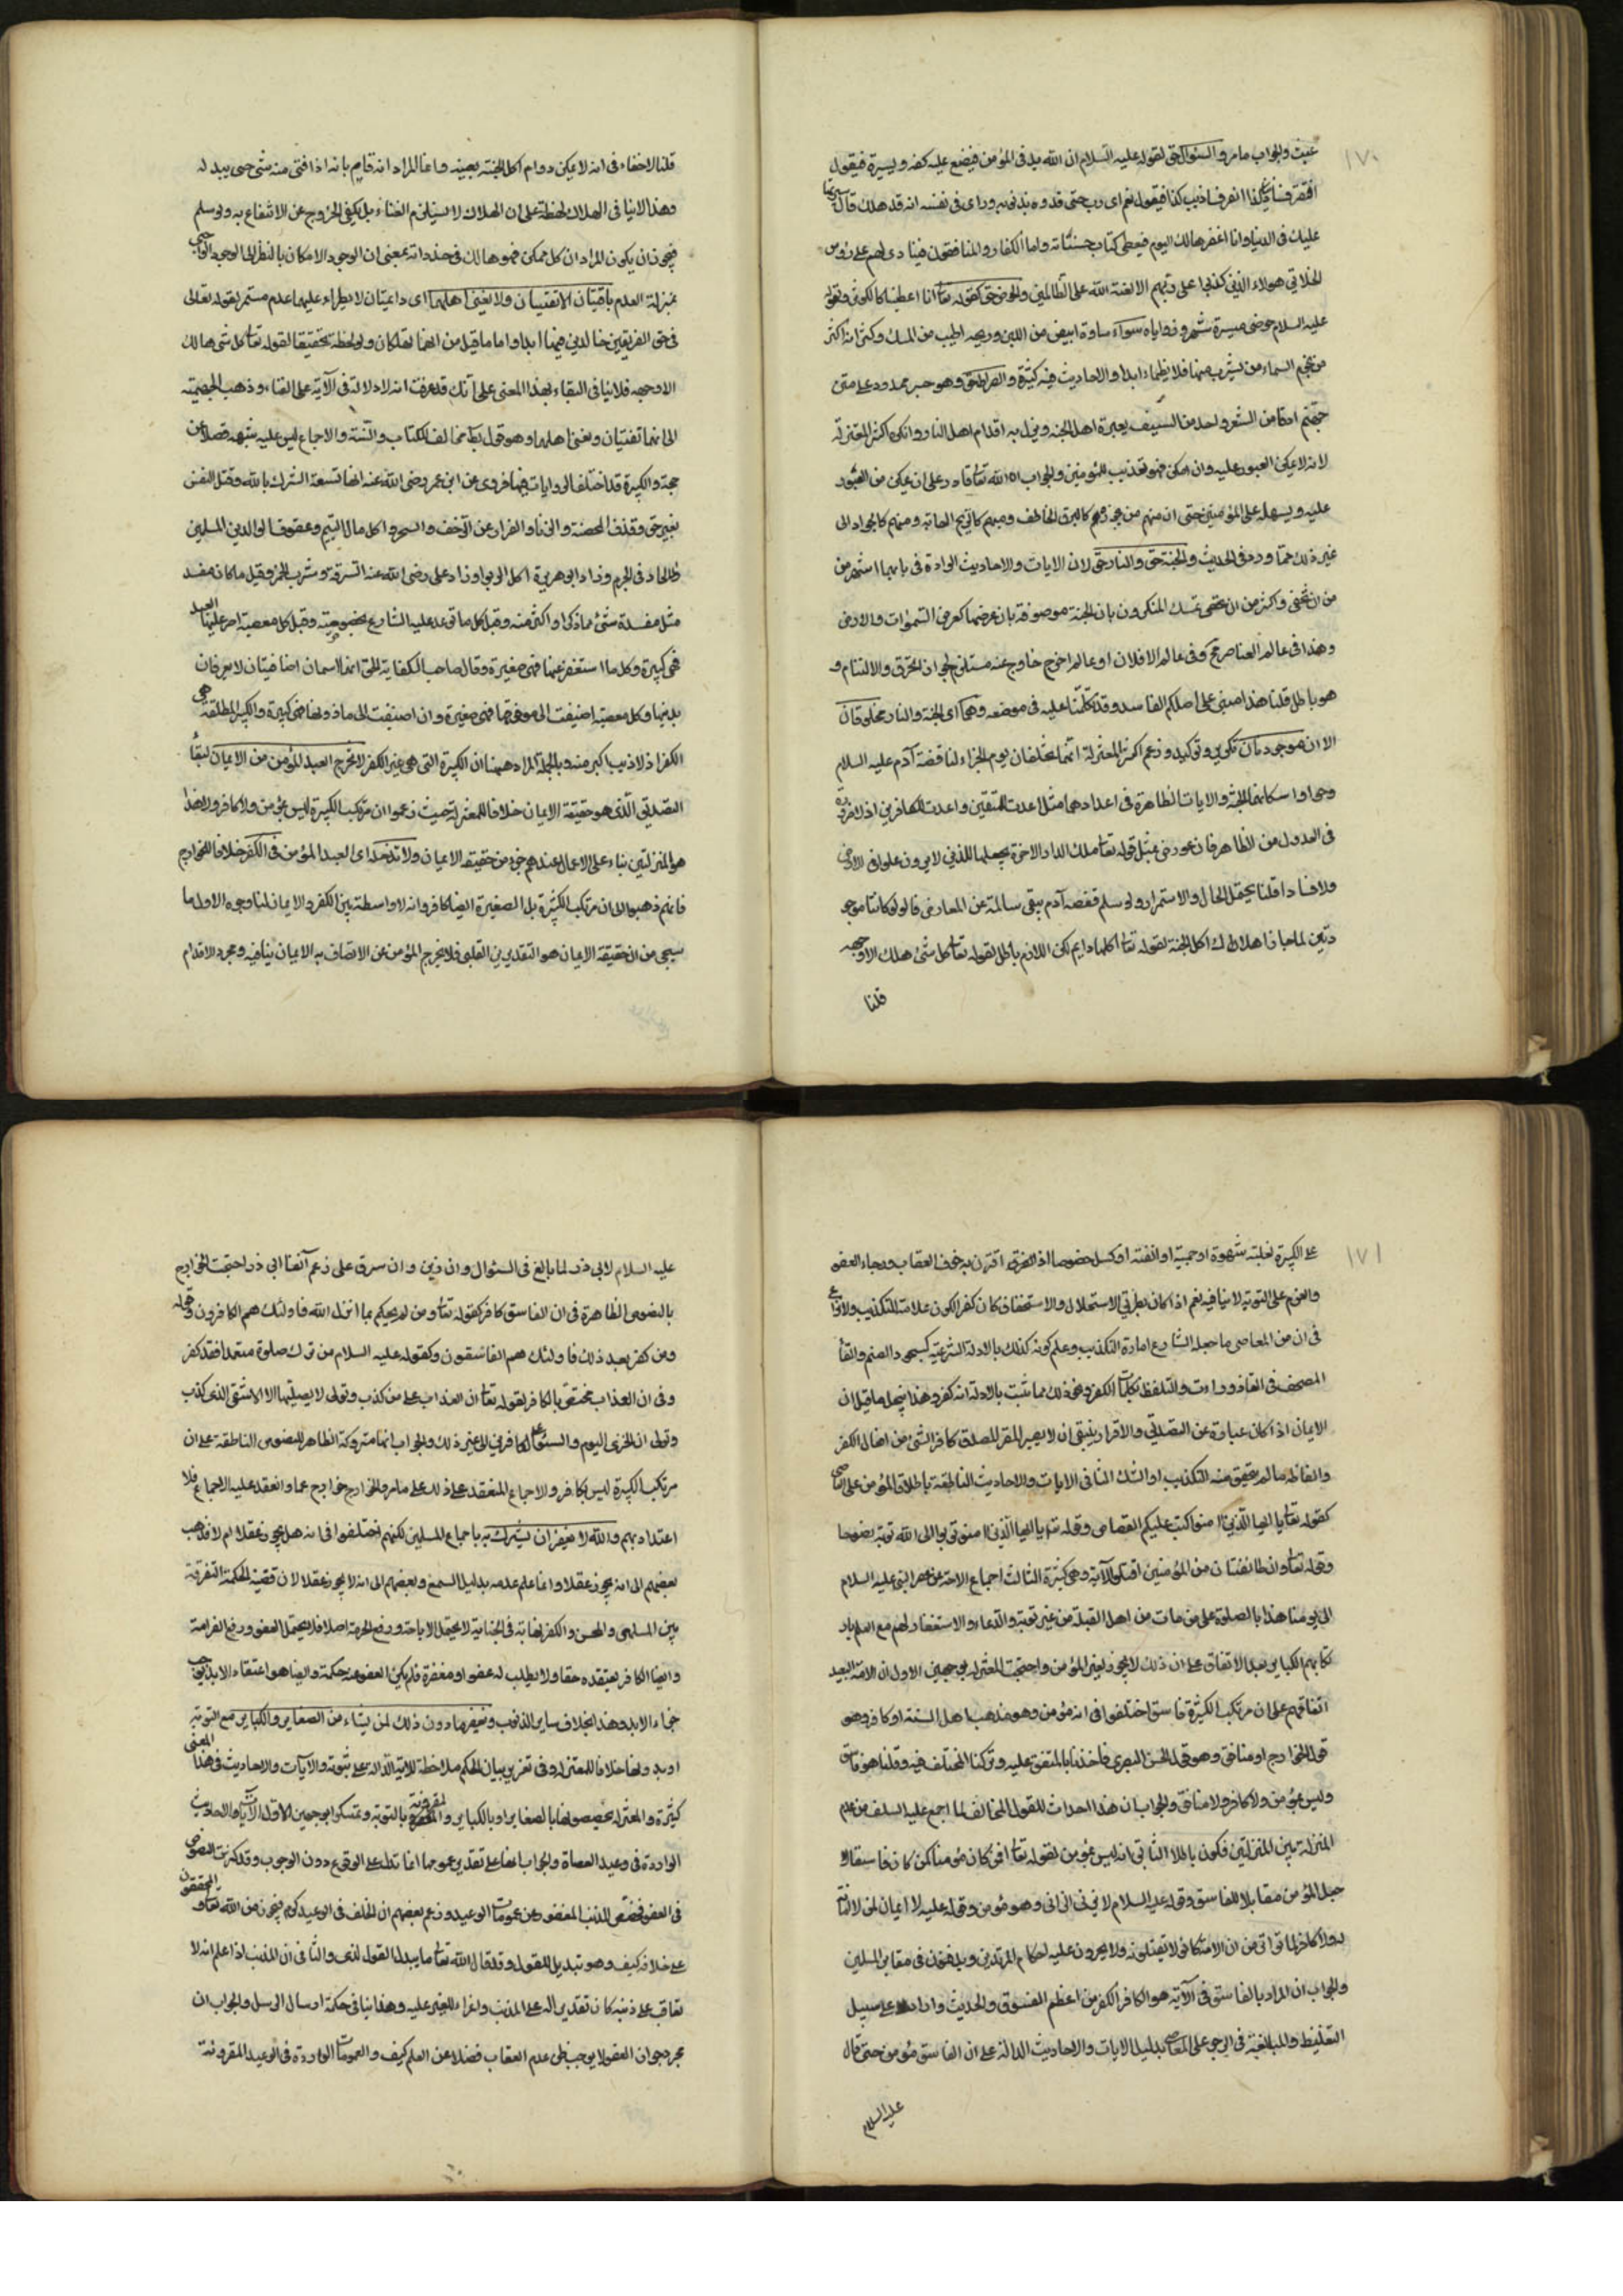 ١٧٠
عبث والجواب ما مر والسؤال حق لقوله عليه السلام ان الله يدنى المؤمن فيضع عليه كنفه ويستره فيقول
اتعرف ذنب كذا اتعرف ذنب كذا فيقول نعم اى رب حتى قرره بذنوبه وراى فى نفسه انه قد هلك قال سترتها
عليك فى الدنيا وانا اغفرها لك اليوم فيعطى كتاب حسناته واما الكفار والمنافقون فينادى لهم على رؤس
الخلائق هؤلاء الذين كذبوا على ربهم الا لعنة الله على الظالمين والحوض حق لقوله تعا انا اعطيناك الكوثر ولقوله
عليه السلام حوضى مسيرة شهر وزواياه سواء ماؤه ابيض من اللبن وريحه اطيب من المسك وكيزانه اكثر
من نجوم السماء من يشرب منها فلا يظماء ابدا والاحاديث فيه كثيرة والصراط حق وهو جسر ممدود على متن
جهنم ادق من الشعر واحد من السيف يعبره اهل الجنة ويزل به اقدام اهل النار وانكره اكثر المعتزلة
لانه لا يمكن العبور عليه وان امكن فهو تعذيب للمؤمنين والجواب ان الله تعا قادر على ان يمكن من العبور
عليه ويسهله على المؤمنين حتى ان منهم من يجوزه كالبرق الخاطف ومنهم كالريح الهابة ومنهم كالجواد الى
غير ذلك مما ورد فى الحديث والجنة حق والنار حق لان الايات والاحاديث الواردة فى بابهما اشهر من
من ان تخفى واكثر من ان تحصى تمسك المنكرون بان الجنة موصوفة بان عرضها كعرض السموات والارض
وهذا فى عالم العناصر مح وفى عالم الافلاك او عالم اخر خارج عنه مستلزم لجواز الخرق والالتئام و
هو باطل قلنا هذا مبنى على اصلكم الفاسد وقد تكلمنا عليه فى موضعه وهما اى الجنة والنار مخلوقتان
الان موجودتان تكرير وتوكيد وزعم اكثر المعتزلة انهما تخلقان يوم الجزاء لنا قصة آدم عليه السلام
وحوا واسكانهما الجنة والايات الظاهرة فى اعدادهما مثل اعدت للمتقين واعدت للكافرين اذ لا ضرورة
فى العدول من الظاهر فان عورض بمثل قوله تعا تلك الدار الاخرة نجعلها للذين لا يريدون علوا فى الارض
ولا فسادا قلنا يحتمل الحال والاستمرار ولو سلم فقصة آدم يبقى سالمة عن المعارض قالوا لو كانتا موجو
دتين لما جاز هلاك اكل الجنة لقوله تعا اكلها دايم لكن اللازم باطل لقوله تعا كل شئ هالك الا وجهه
قلنا
قلنا لاخفاء فى انه لا يمكن دوام اكل الجنة بعينه وانما المراد انه دايم بانه اذا فنى منه شئ جيئ ببدله
وهذا لا ينافى الهلاك لحظة على ان الهلاك لا يستلزم الفناء بل يكفى الخروج عن الانتفاع به ولو سلم
فيجوز ان يكون المراد ان كل ممكن فهو هالك فى حد ذاته بمعنى ان الوجود الامكانى بالنظر الى الوجود الواجبى
بمنزلة العدم باقيتان لا تفنيان ولا يفنى اهلهما اى دائمتان لا يطراء عليهما عدم مستمر لقوله تعالى
فى حق الفريقين خالدين فيها ابدا واما ما قيل من انهما تهلكان ولو لحظة تحقيقا لقوله تعا كل شئ هالك
الا وجهه فلا ينافى البقاء بهذا المعنى على انك قد عرفت انه لا دلالة فى الآية على الفناء وذهب الجهمية
الى انهما تفنيان ويفنى اهلهما وهو قول بط مخالف للكتاب والسنة والاجماع ليس عليه شبهة فضلا عن
حجة والكبيرة قد اختلف الروايات فيها فروى عن ابن عمر رضى الله عنه انها تسعة الشرك بالله وقتل النفس
بغير حق وقذف المحصنة والزنا والفرار عن الزحف والسحر واكل مال اليتيم وعقوق الوالدين المسلمين
والالحاد فى الحرم وزاد ابو هريرة اكل الربوا وزاد على رضى الله عنه السرقة وشرب الخمر وقيل ما كان مفسد
مثل مفسدة شئ مما ذكر او اكثر منه وقيل كل ما توعد عليه الشارع بخصوصيته وقيل كل معصية اصر عليها العبد
فهى كبيرة وكل ما استغفر عنها فهى صغيرة وقال صاحب الكفاية الحق انهما اسمان اضافيتان لا يعرفان
بذاتيهما وكل معصية اضيفت الى ما فوقها فهى صغيرة وان اضيفت الى ما دونها فهى كبيرة والكبيرة المطلقة هى
الكفر اذ لا ذنب اكبر منه وبالجملة المراد ههنا ان الكبيرة التى هى غير الكفر لا تخرج العبد المؤمن من الايمان لبقاء
التصديق الذى هو حقيقة الايمان خلافا للمعتزلة حيث زعموا ان مرتكب الكبيرة ليس بمؤمن ولا كافر وهذا
هو المنزلتين بناء على ان الاعمال عندهم جزء من حقيقة الايمان ولا تدخله اى العبد المؤمن فى الكفر خلافا للخوارج
فانهم ذهبوا الى ان مرتكب الكبيرة بل الصغيرة ايضا كافر وانه لا واسطة بين الكفر والايمان لنا وجوه الاول ما
سيجئ من ان حقيقة الايمان هو التصديق القلبى فلا يخرج المؤمن عن الاتصاف به الا بما ينافيه ومجرد الاقدام
١٧١
على الكبيرة لغلبة شهوة او حمية او انفة او كسل خصوصا اذا اقترن به خوف العقاب ورجاء العفو
والعزم على التوبة لا ينافيه نعم اذا كان بطريق الاستحلال والاستخفاف كان كفرا لكونه علامة للتكذيب ولا نزاع
فى ان من المعاصى ما جعله الشارع امارة التكذيب وعلم كونه كذلك بالادلة الشرعية كسجود الصنم والقاء
المصحف فى القاذورات والتلفظ بكلمات الكفر ونحو ذلك مما يثبت بالادلة انه كفر وهذا ينحل ما قيل ان
الايمان اذا كان عبارة عن التصديق والاقرار ينبغى ان لا يصير المقر المصدق كافرا بشئ من افعال الكفر
والفاظه ما لم يتحقق منه التكذيب او الشك الثانى الايات والاحاديث الناطقة باطلاق المؤمن على العاصى
كقوله تعا يا ايها الذين امنوا كتب عليكم القصاص وقوله تعا يا ايها الذين امنوا توبوا الى الله توبة نصوحا
وقوله تعا وان طائفتان من المؤمنين اقتتلوا الآية وهى كثيرة الثالث اجماع الامة من عصر النبى عليه السلام
الى يومنا هذا بالصلوة على من مات من اهل القبلة من غير توبة والدعاء والاستغفار لهم مع العلم بار
تكابهم الكباير بعد الاتفاق على ان ذلك لا يجوز لغير المؤمن واحتجت المعتزلة بوجهين الاول ان الامة بعد
اتفاقهم على ان مرتكب الكبيرة فاسق اختلفوا فى انه مؤمن وهو مذهب اهل السنة او كافر وهو
قول الخوارج او منافق وهو قول الحسن البصرى فاخذنا بالمتفق عليه وتركنا المختلف فيه وقلنا هو فاسق
وليس بمؤمن ولا كافر ولا منافق والجواب ان هذا احداث للقول المخالف لما اجمع عليه السلف من عدم
المنزلة بين المنزلتين فيكون باطلا الثانى انه ليس بمؤمن لقوله تعا افمن كان مؤمنا كمن كان فاسقا
جعل المؤمن مقابلا للفاسق وقوله عليه السلام لا يزنى الزانى وهو مؤمن وقوله عليه لا ايمان لمن لا امانة
له ولا كافر لما تواتر من ان الامة كانوا لا يقتلونه ولا يجرون عليه احكام المرتدين ويدفنون فى مقابر المسلمين
والجواب ان المراد بالفاسق فى الآية هو الكافر والكفر من اعظم الفسوق والحديث وارد على سبيل
التغليظ والمبالغة فى الزجر على المعاصى بدليل الايات والاحاديث الدالة على ان الفاسق مؤمن حتى قال
عليه السلام
عليه السلام لابى ذر لما بالغ فى السئوال وان زنى وان سرق على زعم آنف ابى ذر احتجت الخوارج
بالنصوص الظاهرة فى ان الفاسق كافر كقوله تعا ومن لم يحكم بما انزل الله فاولئك هم الكافرون وقوله
ومن كفر بعد ذلك فاولئك هم الفاسقون وكقوله عليه السلام من ترك صلوة متعمدا فقد كفر
وفى ان العذاب مختص بالكافر لقوله تعا ان العذاب على من كذب وتولى لا يصليها الا الاشقى الذى كذب
وتولى ان الخزى اليوم والسوء على الكافرين الى غير ذلك والجواب انها متروكة الظاهر للنصوص الناطقة على ان
مرتكب الكبيرة ليس بكافر والاجماع المنعقد على ذلك على ما مر والخوارج خوارج عما انعقد عليه الاجماع فلا
اعتداد بهم والله لا يغفر ان يشرك به باجماع المسلمين لكنهم اختلفوا فى انه هل يجوز عقلا ام لا فذهب
بعضهم الى انه يجوز عقلا وانما علم عدمه بدليل السمع وبعضهم الى انه لا يجوز عقلا لان قضية الحكمة التفرقة
بين المسئ والمحسن والكفر نهاية فى الجناية لا يحتمل الاباحة ورفع الحرمة اصلا فلا يحتمل العفو ورفع الغرامة
وايضا الكافر يعتقده حقا ولا يطلب له عفوا ومغفرة فلم يكن العفو عنه حكمة وايضا هو اعتقاد الابد فيوجب
جزاء الابد وهذا بخلاف ساير الذنوب ويغفر ما دون ذلك لمن يشاء من الصغاير والكباير مع التوبة
او بدونها خلافا للمعتزلة وفى تقرير بيان الحكم ملاحظة للآية الدالة على ثبوته والآيات والاحاديث فى هذا المعنى
كثيرة والمعتزلة يخصصونها بالصغاير او بالكباير المقرونة بالتوبة وتمسكوا بوجهين الاول الآيات والاحاديث
الواردة فى وعيد العصاة والجواب انها على تقدير عمومها انما تدل على الوقوع دون الوجوب وقد كثرت النصوص
فى العفو فيخصص المذنب المغفور عن عمومات الوعيد وزعم بعضهم ان الخلف فى الوعيد كرم فيجوز من الله تعا والمحققون
على خلافه كيف وهو تبديل للقول وقد قال الله تعا ما يبدل القول لدى والثانى ان المذنب اذا علم انه لا
يعاقب على ذنبه كان تقديرا له على المذنب واغراء للغير عليه وهذا ينافى حكمة ارسال الرسل والجواب ان
مجرد جواز العفو لا يوجب ظن عدم العقاب فضلا عن العلم كيف والعمومات الواردة فى الوعيد المقرونة